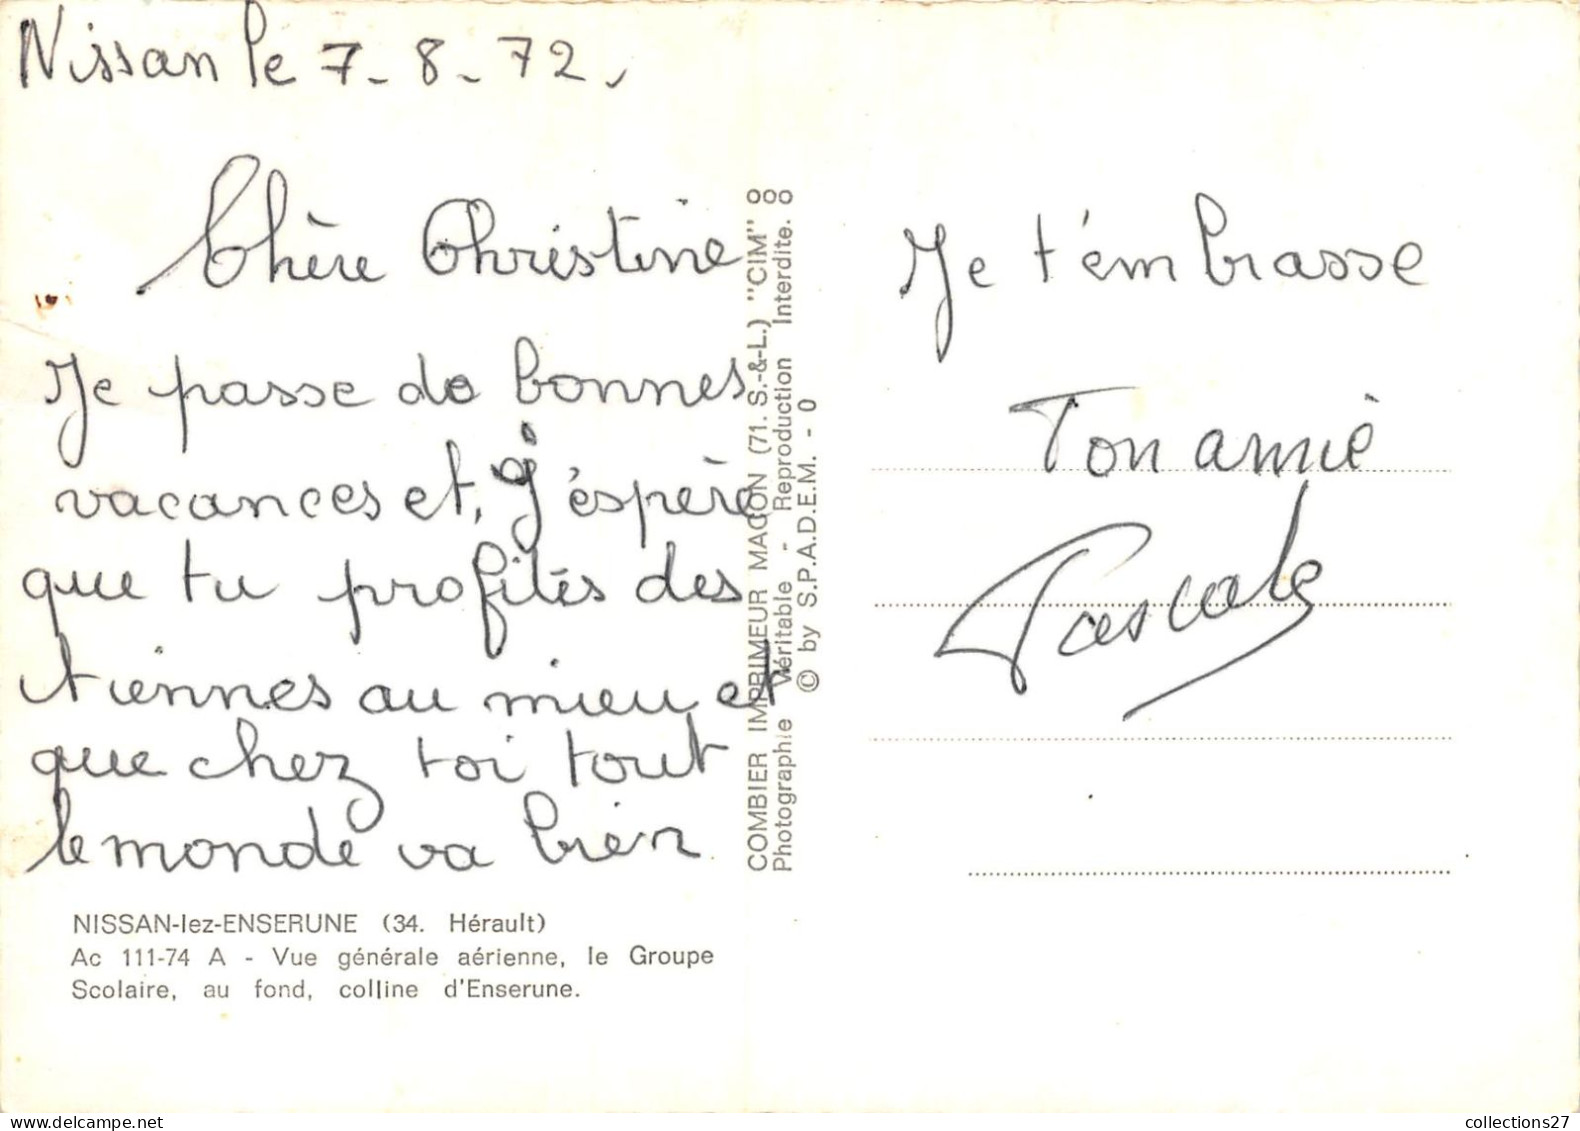 Nissan le 7-8-72,
Chère Christine
Je passe de bonnes
vacances et, j'éspère
que tu profités des
tiennes au mieu et
que chez toi tout
le monde va bien
NISSAN-lez-ENSERUNE (34. Hérault)
Ac 111-74 A - Vue générale aérienne, le Groupe
Scolaire, au fond, colline d'Enserune.
COMBIER IMPRIMEUR MACON (71. S.-&-L.) "CIM"
Photographie Véritable - Reproduction Interdite.
© by S.P.A.D.E.M. - 0
Je t'émbrasse
Ton amie
Pascale
collections27